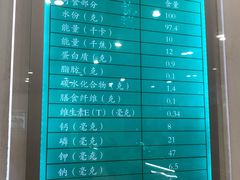 食部分 含量
水份（克） 100
能量（千卡） 97.4
能量（千焦） 10
蛋白质（克） 12
脂肪（克） 0.9
碳水化合物（克） 0.1
膳食纤维（克） 1.4
维生素E（T）（毫克） 0.34
钙（毫克） 8
磷（毫克） 21
钾（毫克） 47
钠（毫克） 6.5